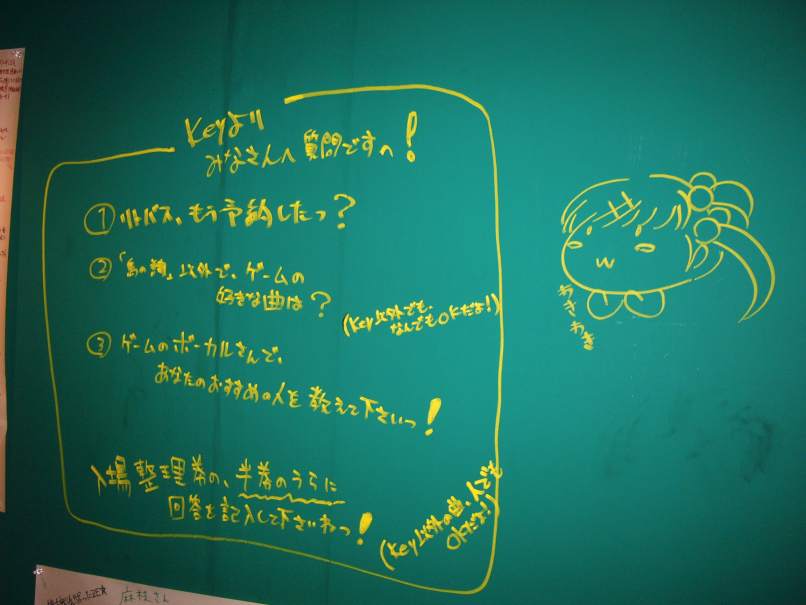 Keyより
みなさんへ質問ですへ!
① リトバス、もう予約したっ?
② 「鳥の詩」以外で、ゲームの
好きな曲は?
(Key以外でも、
なんでもOKだよ!)
③ ゲームのボーカルさんで、
あなたのおすすめの人を教えて下さいっ!
入場整理券の、半券のうらに
回答を記入して下さいねっ!
(Key以外の曲、人でも
OKだよ!)
わきわき
麻枝さん